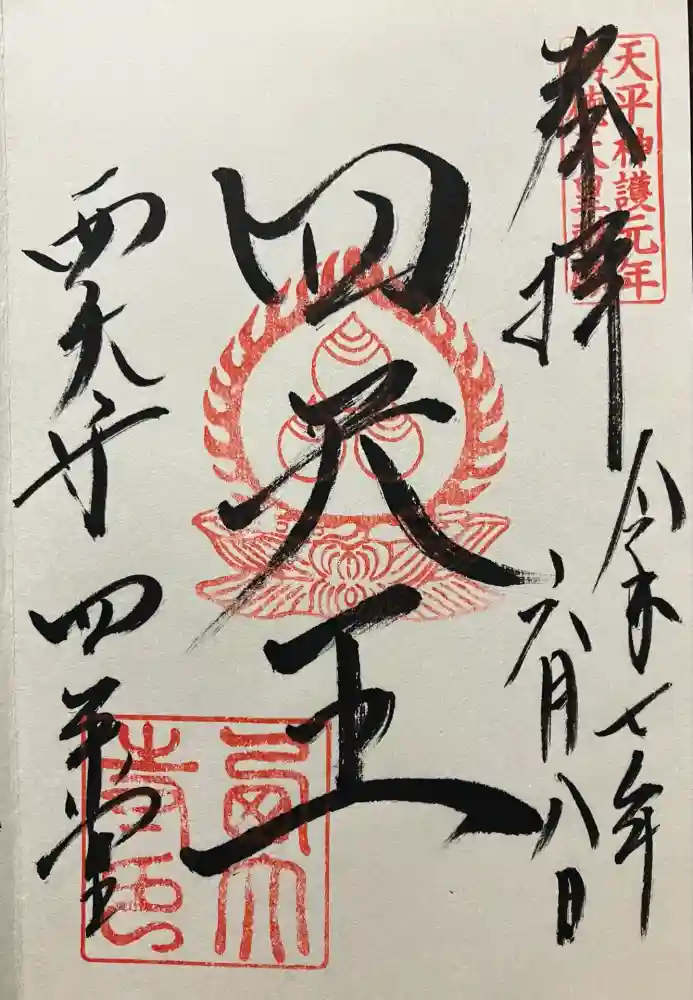 天平神護元年
奉拝
令和七年
六月八日
四天王
西大寺 四王堂
西大寺印